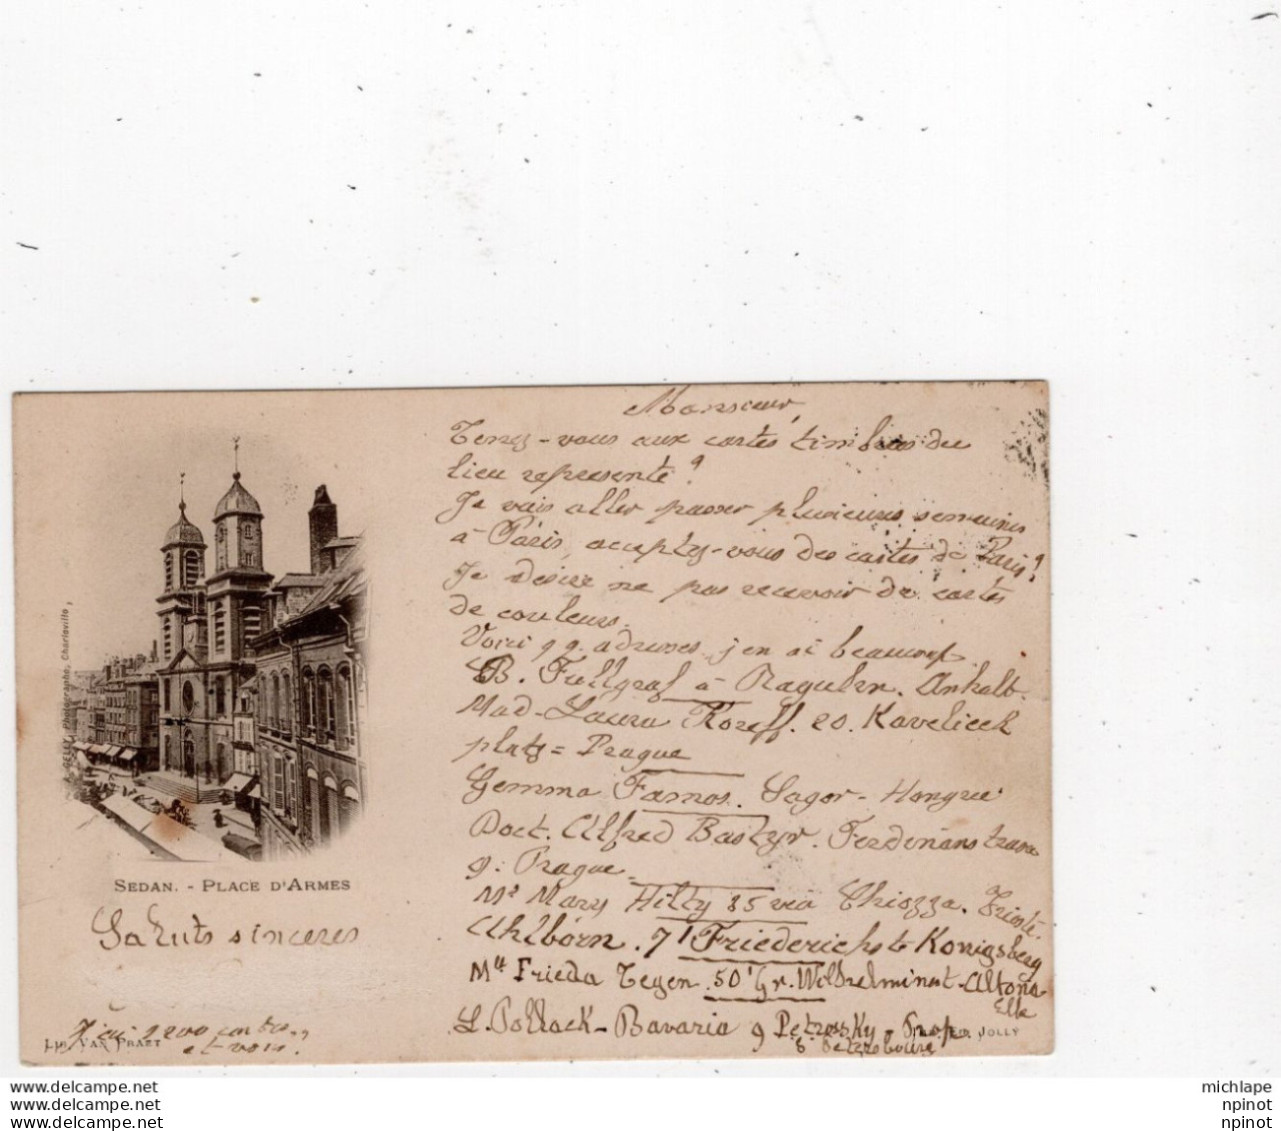 Monsieur,
Tenez-vous aux cartes timbrées du
lieu representé?
Je vais aller passer plusieurs semaines
à Paris, acceptez-vous des cartes de Paris?
Je désire ne pas recevoir de cartes
de couleurs.
Voici qq. adresses j'en ai beaucoup
B. Fullgraf à Raguhn. Anhalt.
Mad. Laura Koreff. 20. Havelicek
platz = Prague
Gemma Famos. Sagor - Hongrie
Doct. Alfred Bastyr. Ferdinanstrasse
9. Prague.
Mr Mary Hilty 85 via Chiozza. Trieste
Ahlborn. 71 Friederichstr Konigsberg
Mlle Frieda Tegen. 50 Gr. Wilhelminest. Altona
Elbe
L. Pollack - Bavaria 9 Petrossky - Prosp.
St Petersbourg
A. GESLY, Photographe, Charleville,
SEDAN. - PLACE D'ARMES
Saluts sinceres
J'ai 2200 cartes,
et vous.
LIB. VAN PRAET
JOLLY
michlape
npinot
npinot
delcampe.net